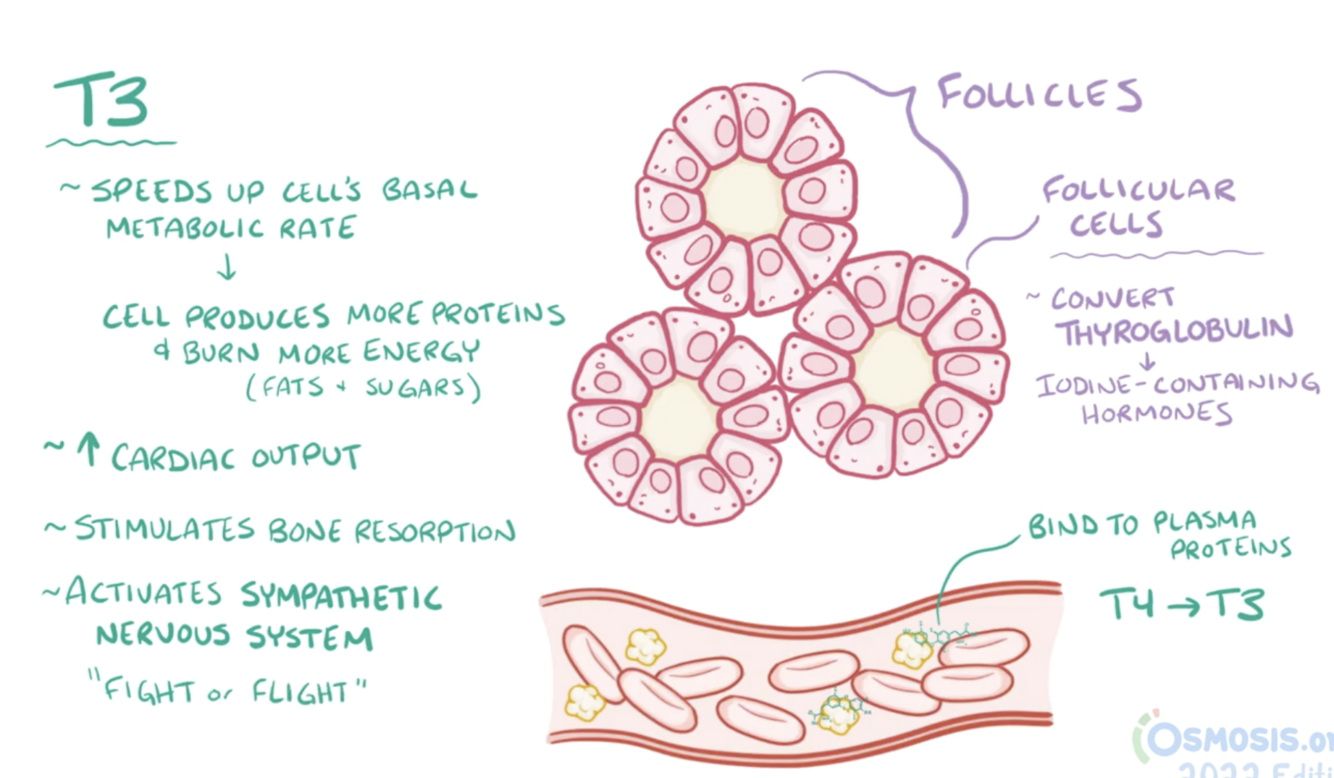 T3
~ SPEEDS UP CELL'S BASAL
METABOLIC RATE
↓
CELL PRODUCES MORE PROTEINS
& BURN MORE ENERGY
(FATS + SUGARS)
~ ↑ CARDIAC OUTPUT
~ STIMULATES BONE RESORPTION
~ ACTIVATES SYMPATHETIC
NERVOUS SYSTEM
"FIGHT or FLIGHT"
FOLLICLES
FOLLICULAR
CELLS
~ CONVERT
THYROGLOBULIN
↓
IODINE-CONTAINING
HORMONES
BIND TO PLASMA
PROTEINS
T4 → T3
OSMOSIS.or
2023 Editi